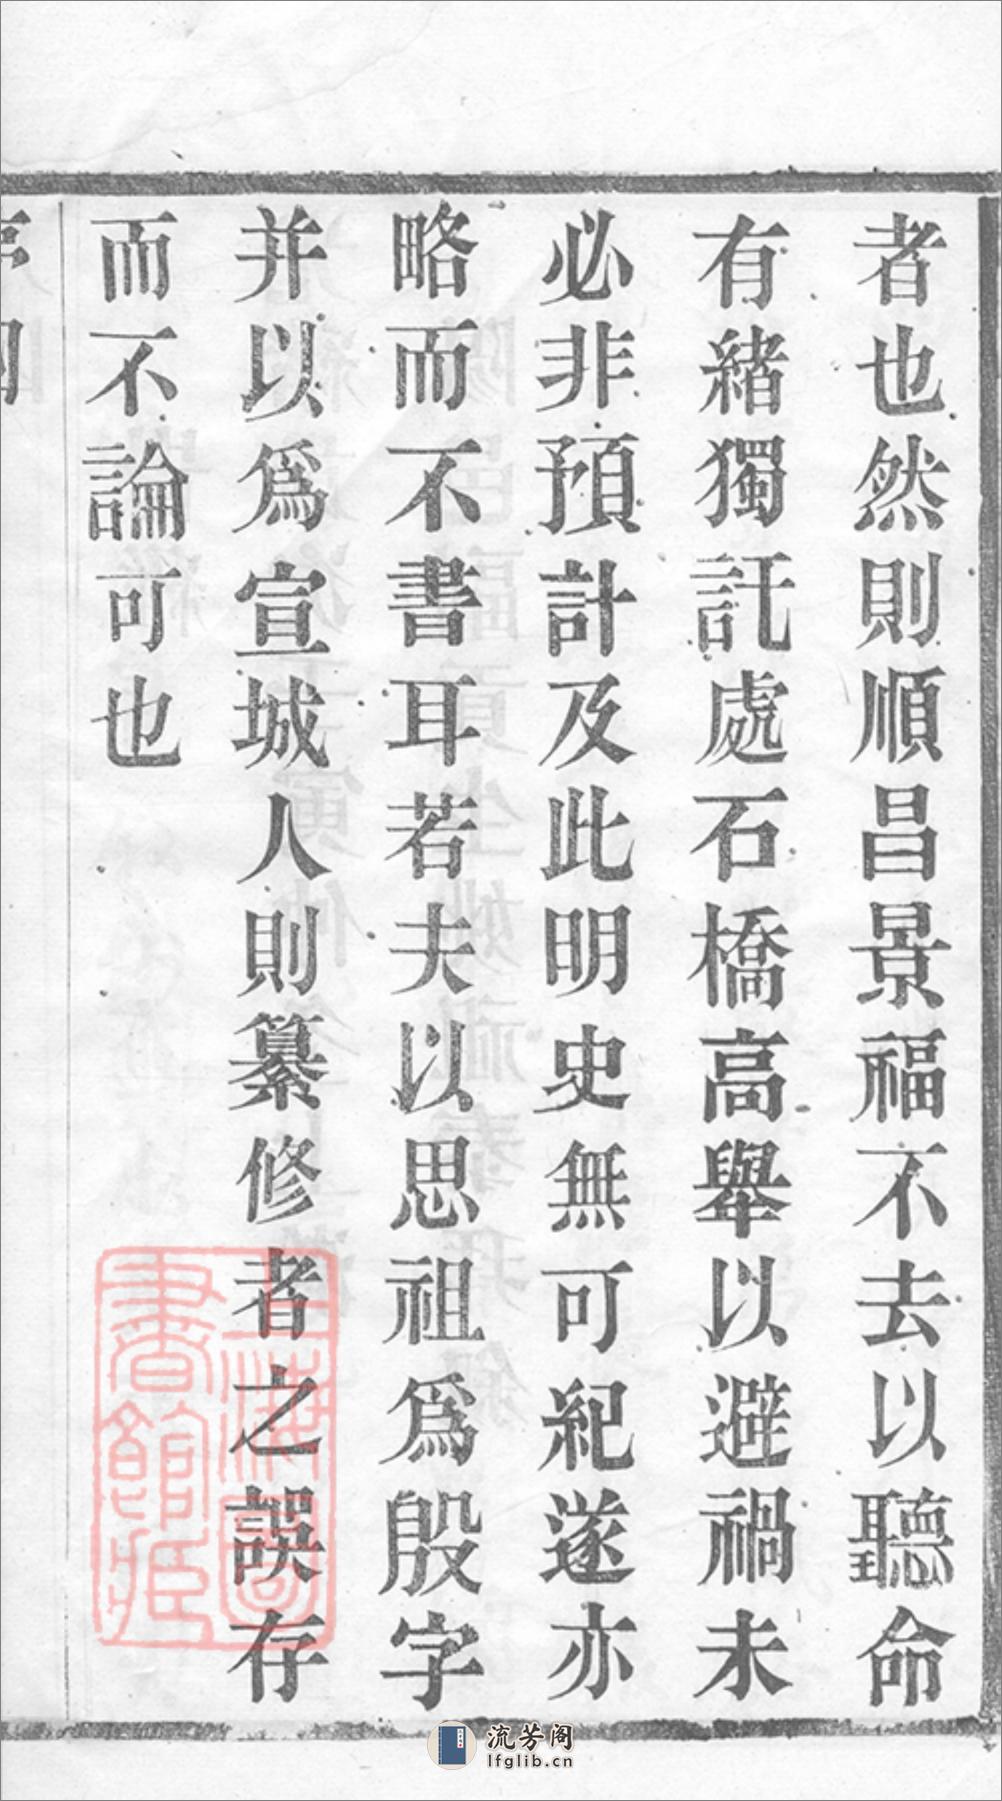 者也然則順昌景福不去以聽命
有緒獨託處石橋高舉以避禍未
必非預計及此明史無可紀遂亦
略而不書耳若夫以思祖爲殷字
并以爲宣城人則纂修者之誤存
而不論可也
上海圖書館藏
流芳阁
lfglib.cn